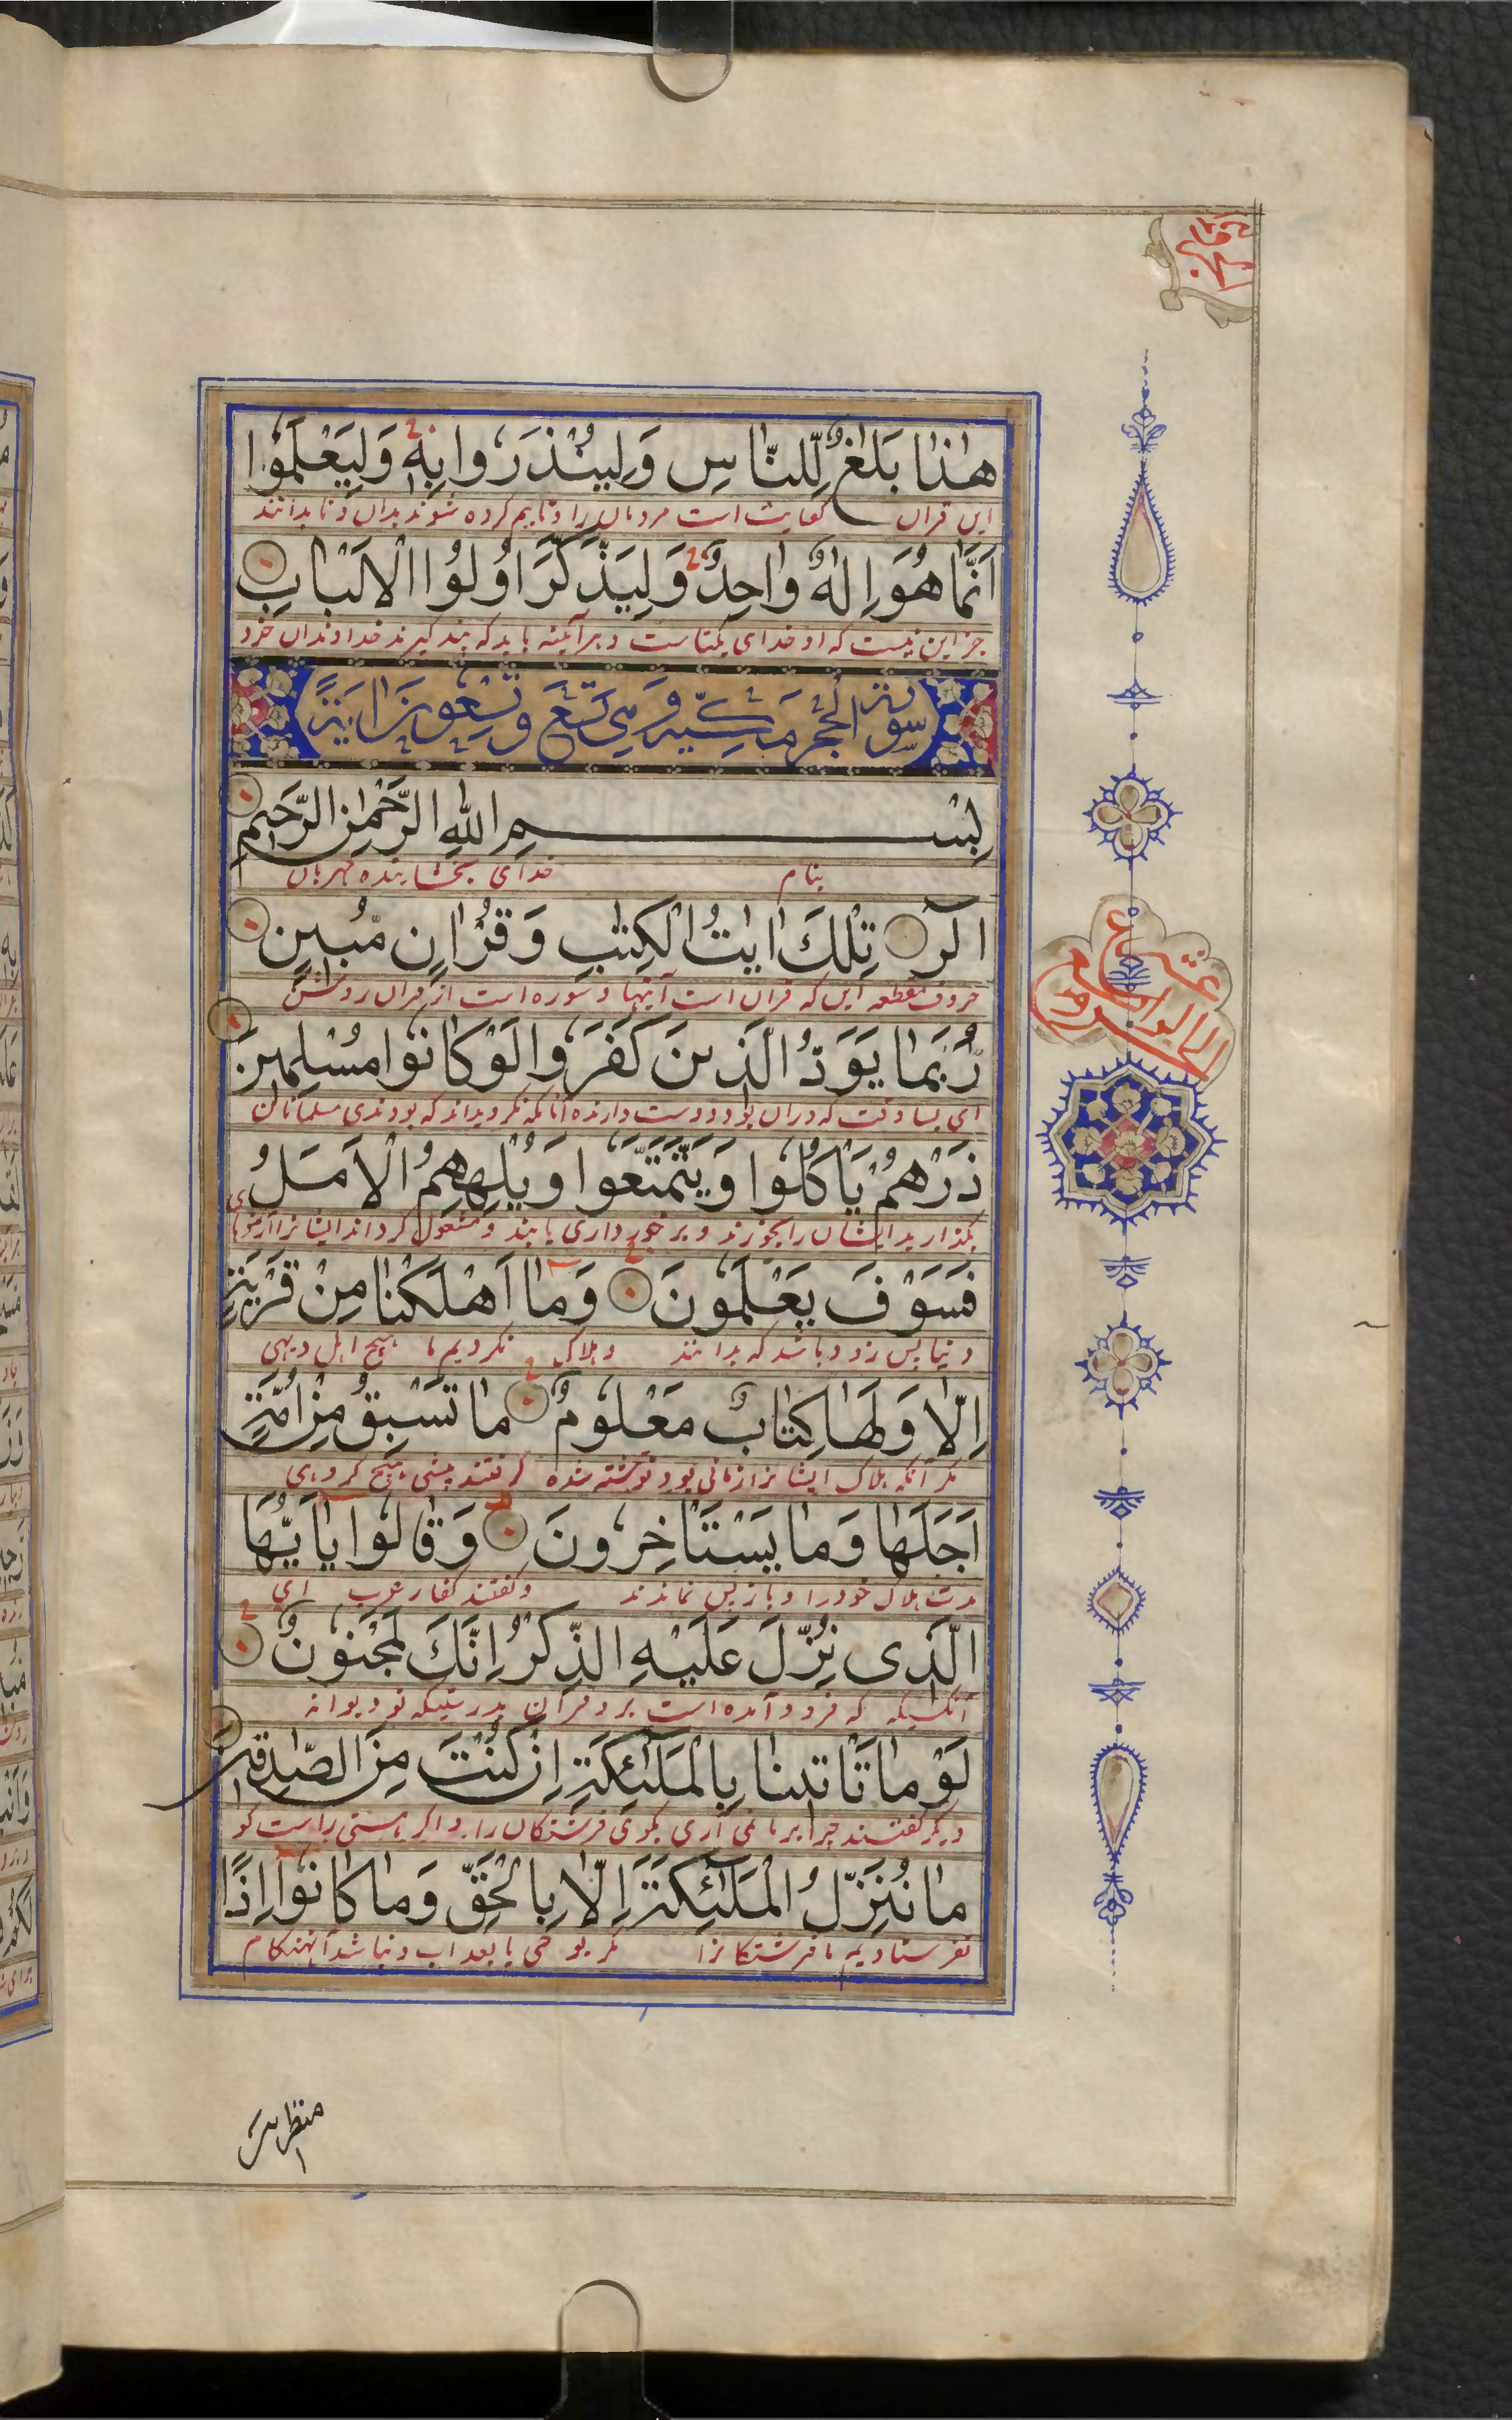 هٰذا بَلٰغٌ لِلنّاسِ وَلِيُنْذَرُوا بِهٖ وَلِيَعْلَمُوٓا
این قران کفایت است مردمان را و تا بیم کرده شوند بدان و تا بدانند
اَنَّمٰا هُوَ اِلٰهٌ وٰاحِدٌ وَلِيَذَّكَّرَ اُولُوا الْاَلْبٰابِ
جز این نیست که او خدای یکتاست و هرآینه باید که پند گیرند خداوندان خرد
سورة الحجر مكية وهي تسع وتسعون اية
بِسْمِ اللّٰهِ الرَّحْمٰنِ الرَّحٖيمِ
بنام خدای بخشاینده مهربان
الٓرٰ تِلْكَ اٰيٰتُ الْكِتٰبِ وَقُرْاٰنٍ مُبٖينٍ
حروف مقطعه این که قران است آیتها و سوره است از قران روشن
رُبَمٰا يَوَدُّ الَّذٖينَ كَفَرُوا لَوْ كٰانُوا مُسْلِمٖينَ
ای بسا وقت که دران بود دوست دارنده آنانکه نکرویداند که بودندی مسلمانان
ذَرْهُمْ يَأْكُلُوا وَيَتَمَتَّعُوا وَيُلْهِهِمُ الْاَمَلُ
بگذارید ایشان را بخورند و برخورداری یابند و مشغول کرداند ایشانرا آرزوهای
فَسَوْفَ يَعْلَمُونَ وَمٰٓا اَهْلَكْنٰا مِنْ قَرْيَةٍ
دنیا پس زود باشد که بدانند و هلاک نکردیم ما هیچ اهل دیهی
اِلّٰا وَلَهٰا كِتٰابٌ مَعْلُومٌ مٰا تَسْبِقُ مِنْ اُمَّةٍ
مکر آنکه هلاک ایشانرا زمانی بود نوشته شده نگرفتند پیشی هیچ کروهی
اَجَلَهٰا وَمٰا يَسْتَأْخِرُونَ وَقٰالُوا يٰٓا اَيُّهَا
مدت هلاک خود را و باز پس نماندند و گفتند کفار عرب ای
الَّذٖى نُزِّلَ عَلَيْهِ الذِّكْرُ اِنَّكَ لَمَجْنُونٌ
آنکسیکه که فرود آمده است برو قرآن بدرستیکه تو دیوانه
لَوْ مٰا تَأْتٖينٰا بِالْمَلٰٓئِكَةِ اِنْ كُنْتَ مِنَ الصّٰدِقٖينَ
دیگر گفتند چرا بر ما نمی آری بگوی فرشتگان را اگر هستی راست گو
مٰا نُنَزِّلُ الْمَلٰٓئِكَةَ اِلّٰا بِالْحَقِّ وَمٰا كٰانُوٓا اِذًا
نفرستادیم ما فرشتکانرا مکر بوحی یا بعذاب و نباشد آنهنکام
منظرین